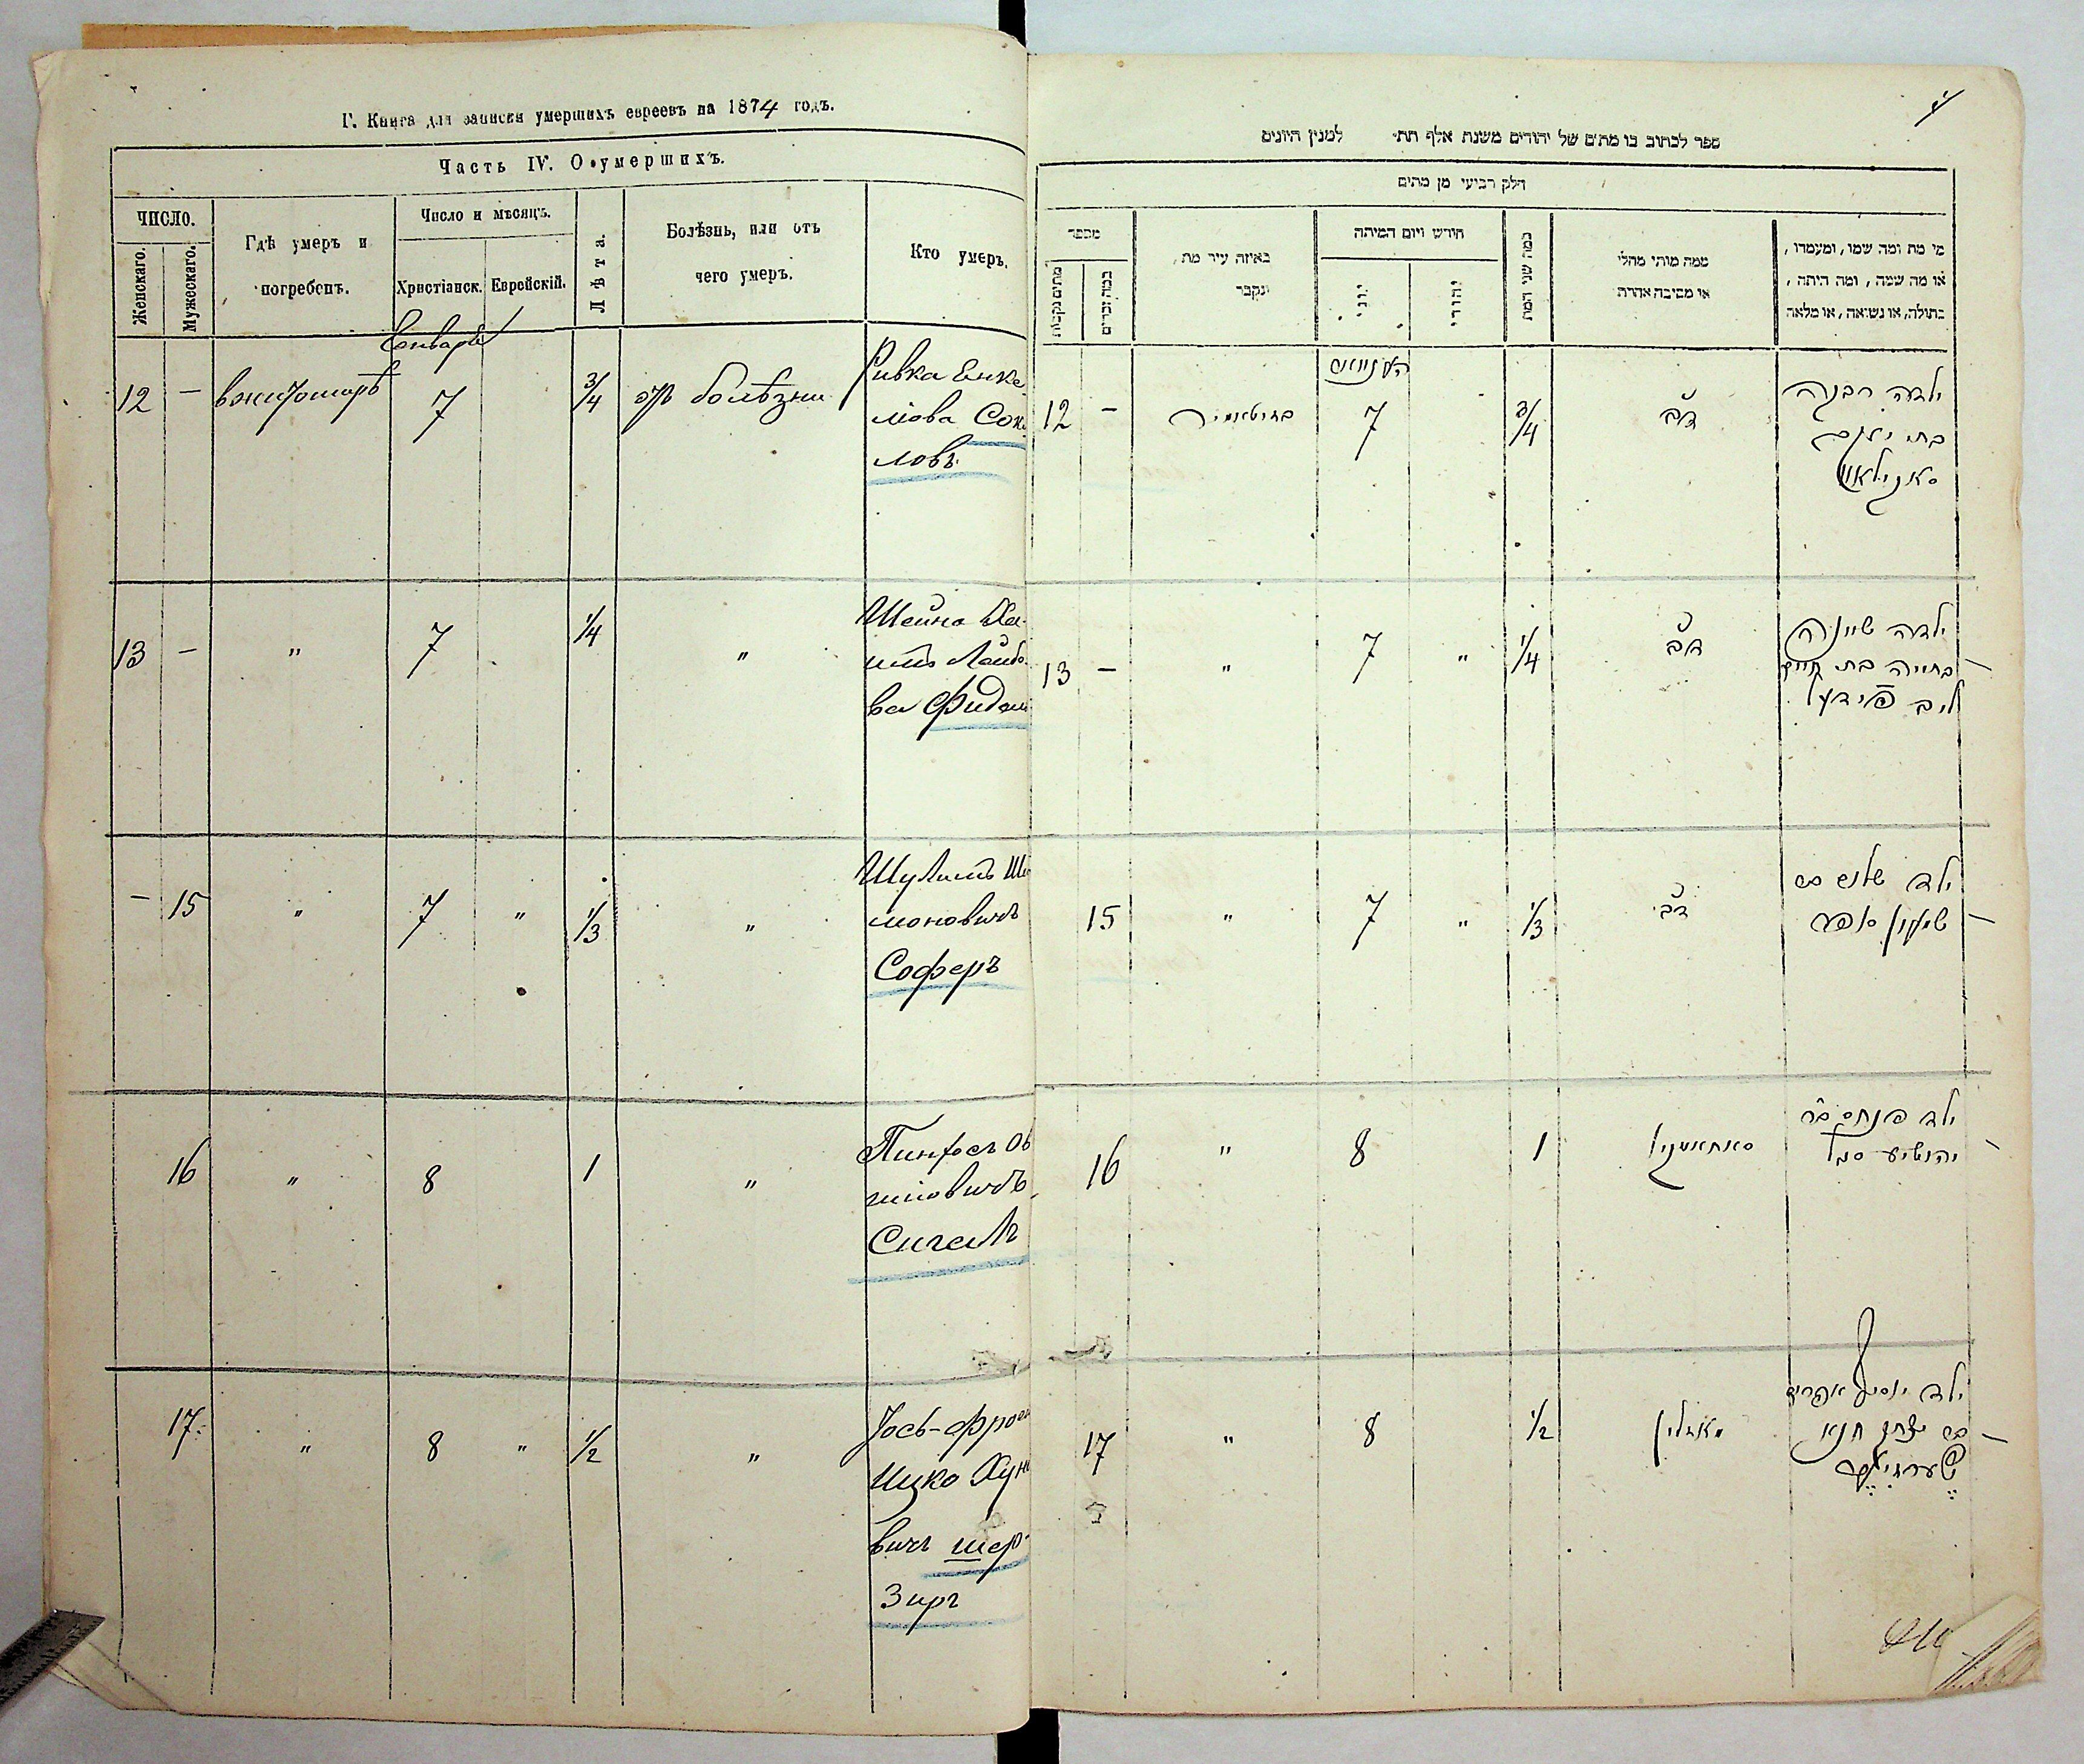 Г. Книга для записки умершихъ евреевъ на 1874 годъ.
Часть IV. О умершихъ.
ЧИСЛО.
Женскаго.
Мужескаго.
Гдѣ умеръ и
погребенъ.
Число и мѣсяцъ.
Христіанск.
Еврейскій.
Лѣта.
Болѣзнь, или отъ
чего умеръ.
Кто умеръ.
Енваря
12 — вжитомирѣ 7 3/4 отъ болѣзни
Ривка Енке
лова Соко
ловъ
13 — " 7 1/4 "
Шейна Ха
Лейбо
ва
— 15 " 7 " 1/3 "
Шулимъ Ши
моновичъ
Соферъ
16 " 8 1 "
Пинхосъ Ов
шіовичъ
Сигелъ
17 " 8 " 1/2 "
Іось-Фрои
Ицко Хун
вичъ Шер
зиръ
ספר לכתוב בו מתים של יהודים משנת אלף תת״ למנין היונים
חלק רביעי מן מתים
מספר
מתים נקבות
כמה זכרים
באיזה עיר מת,
ונקבר
חודש ויום המיתה
יוני
יהודי
כמה שני המת
ממה מותי מחלי
או מסיבה אחרת
מי מת ומה שמו, ומעמדו,
או מה שמה, ומה היתה,
בתולה, או נשואה, או מלאה
12 — בזיטאמיר 7 3/4
ילדה רבקה
בת יעקב
סאקילאוו
13 — " 7 " 1/4
ילדה שיינה
בת חיים
ליב פידעל
15 " 7 " 1/3
ילד שלום בן
שמעון סופר
16 " 8 1
ילד פנחס בר
יהושיע סגל
17 " 8 1/2 מאזלין
ילד יוסף אפרים
בן יצחק חנא
שערזיר